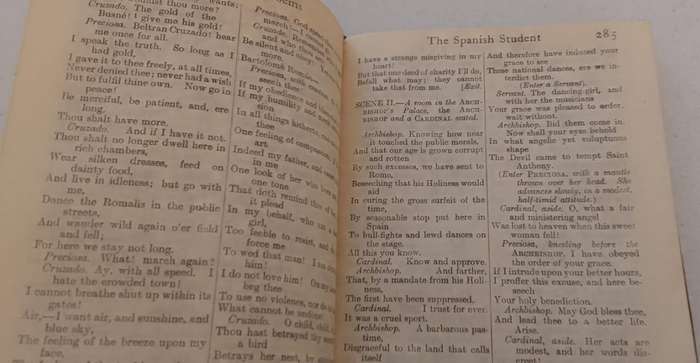 wouldst thou more?
Cruzado. The gold of the
Busné! I give me his gold!
Preciosa. Beltran Cruzado! hear
me once for all.
I speak the truth. So long as I
had gold,
I gave it to thee freely, at all times,
Never denied thee; never had a wish
But to fulfil thine own. Now go in
peace!
Be merciful, be patient, and, ere
long,
Thou shalt have more.
Cruzado. And if I have it not,
Thou shalt no longer dwell here in
rich chambers,
Wear silken dresses, feed on
dainty food,
And live in idleness; but go with
me,
Dance the Romalis in the public
streets,
And wander wild again o'er field
and fell;
For here we stay not long.
Preciosa. What! march again?
Cruzado. Ay, with all speed. I
hate the crowded town!
I cannot breathe shut up within its
gates!
Air,—I want air, and sunshine, and
blue sky,
The feeling of the breeze upon my
face,
Preciosa. God
Cruzado.
and who
Be silent and
more.
Bartolomé Román
Preciosa.
thee!
If my obedience and
If my humility and
sion
In all things hitherto,
thee
One feeling of
Indeed my father, and
in me
One look of her who
one tone
That doth remind thee of
it plead
In my behalf, who am a
girl,
Too feeble to resist, and
force me
To wed that man! I am
him!
I do not love him! On my
beg thee
To use no violence, nor do
What cannot be undone!
Cruzado. O child, child,
Thou hast betrayed thy
a bird
Betrays her nest, by
The Spanish Student 285
I have a strange misgiving in my
heart!
But that one deed of charity I'll do,
Befall what may; they cannot
take that from me. [Exit.
SCENE II.—A room in the ARCH-
BISHOP'S PALACE. The ARCH-
BISHOP and a CARDINAL seated.
Archbishop. Knowing how near
it touched the public morals,
And that our age is grown corrupt
and rotten
By such excesses, we have sent to
Rome,
Beseeching that his Holiness would
aid
In curing the gross surfeit of the
time,
By seasonable stop put here in
Spain
To bull-fights and lewd dances on
the stage.
All this you know.
Cardinal. Know and approve.
Archbishop. And farther,
That, by a mandate from his Holi-
ness,
The first have been suppressed.
Cardinal. I trust for ever.
It was a cruel sport.
Archbishop. A barbarous pas-
time,
Disgraceful to the land that calls
itself
And therefore have induced your
grace to see
These national dances, ere we in-
terdict them.
(Enter a Servant.)
Servant. The dancing-girl, and
with her the musicians
Your grace was pleased to order,
wait without.
Archbishop. Bid them come in.
Now shall your eyes behold
In what angelic yet voluptuous
shape
The Devil came to tempt Saint
Anthony.
(Enter PRECIOSA, with a mantle
thrown over her head. She
advances slowly, in a modest,
half-timid attitude.)
Cardinal, aside. O, what a fair
and ministering angel
Was lost to heaven when this sweet
woman fell!
Preciosa, kneeling before the
ARCHBISHOP. I have obeyed
the order of your grace.
If I intrude upon your better hours,
I proffer this excuse, and here be-
seech
Your holy benediction.
Archbishop. May God bless thee,
And lead thee to a better life.
Arise.
Cardinal, aside. Her acts are
modest, and her words dis-
creet!